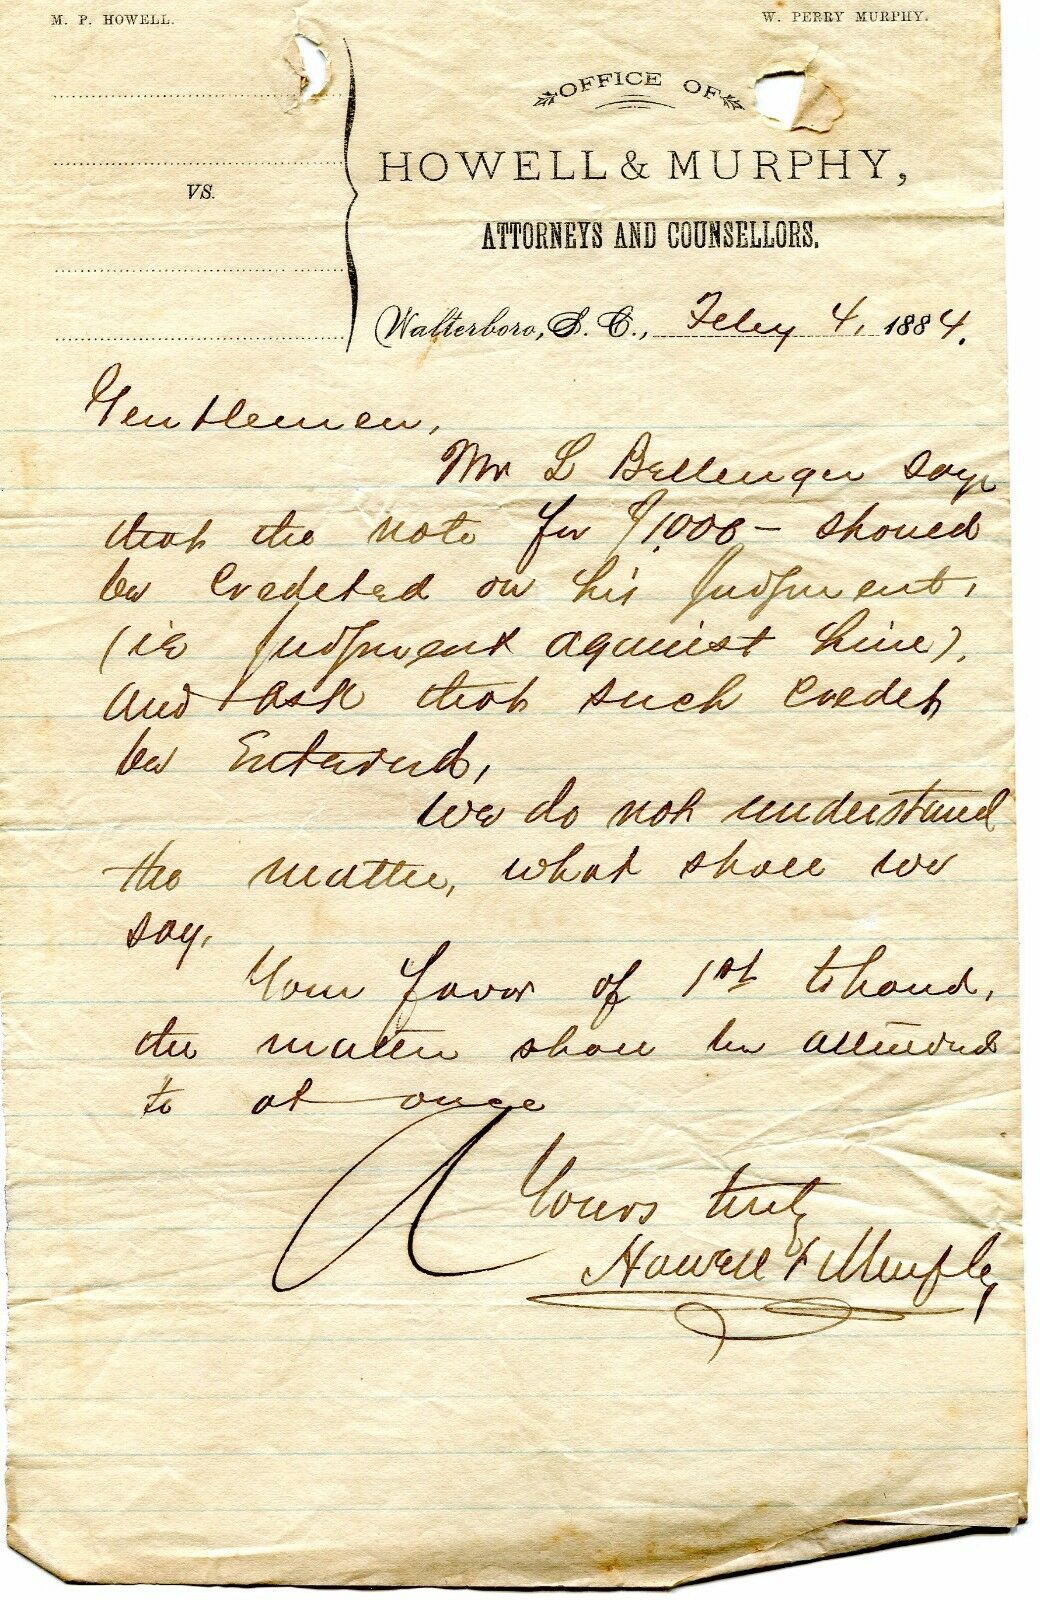 M. P. HOWELL.
W. PERRY MURPHY.
OFFICE OF
HOWELL & MURPHY,
VS.
ATTORNEYS AND COUNSELLORS.
Walterboro, S. C., Feby 4, 1884.
Gentlemen,
Mr L Bellenger says
that the note for $1,000 – should
be credeted on his judgment,
(ie judgment against him),
and ask that such credet
be Entered,
We do not understand
the matter, what shall we
say,
Your favor of 1st to hand,
the matter shall be attended
to at once
Yours truly
Howell & Murphy